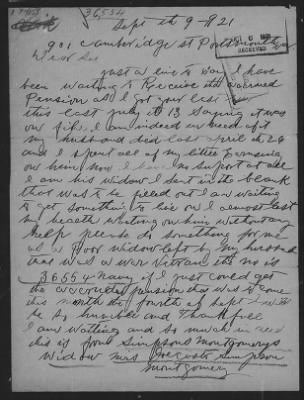 36554
Sept the 9-1921
901 Cambridge st Portsmouth
Dear Sir
RECEIVED
just a line to say I have
been waiting to Receive the accrued
Pension as I got your last
this last july the 13 saying it was
on file I am indeed in need of it
my husband died last april the 26
and I spent all of my little
on him now I have no support at all
I am his widow I sent in the blank
that was to be filled out I am waiting
to get something to live on I almost lost
my health waiting on him without any
help please do something for me
as a poor widow left by my husband
that was a war vetran the no is
36554 Navy if I just could get
the accrued pension that was to come
this month the fourth of Sept I will
be so humble and Thankfull
I am waiting and so much in need
this is from Simpsons montgomerys
widow mrs Simpson
montgomery